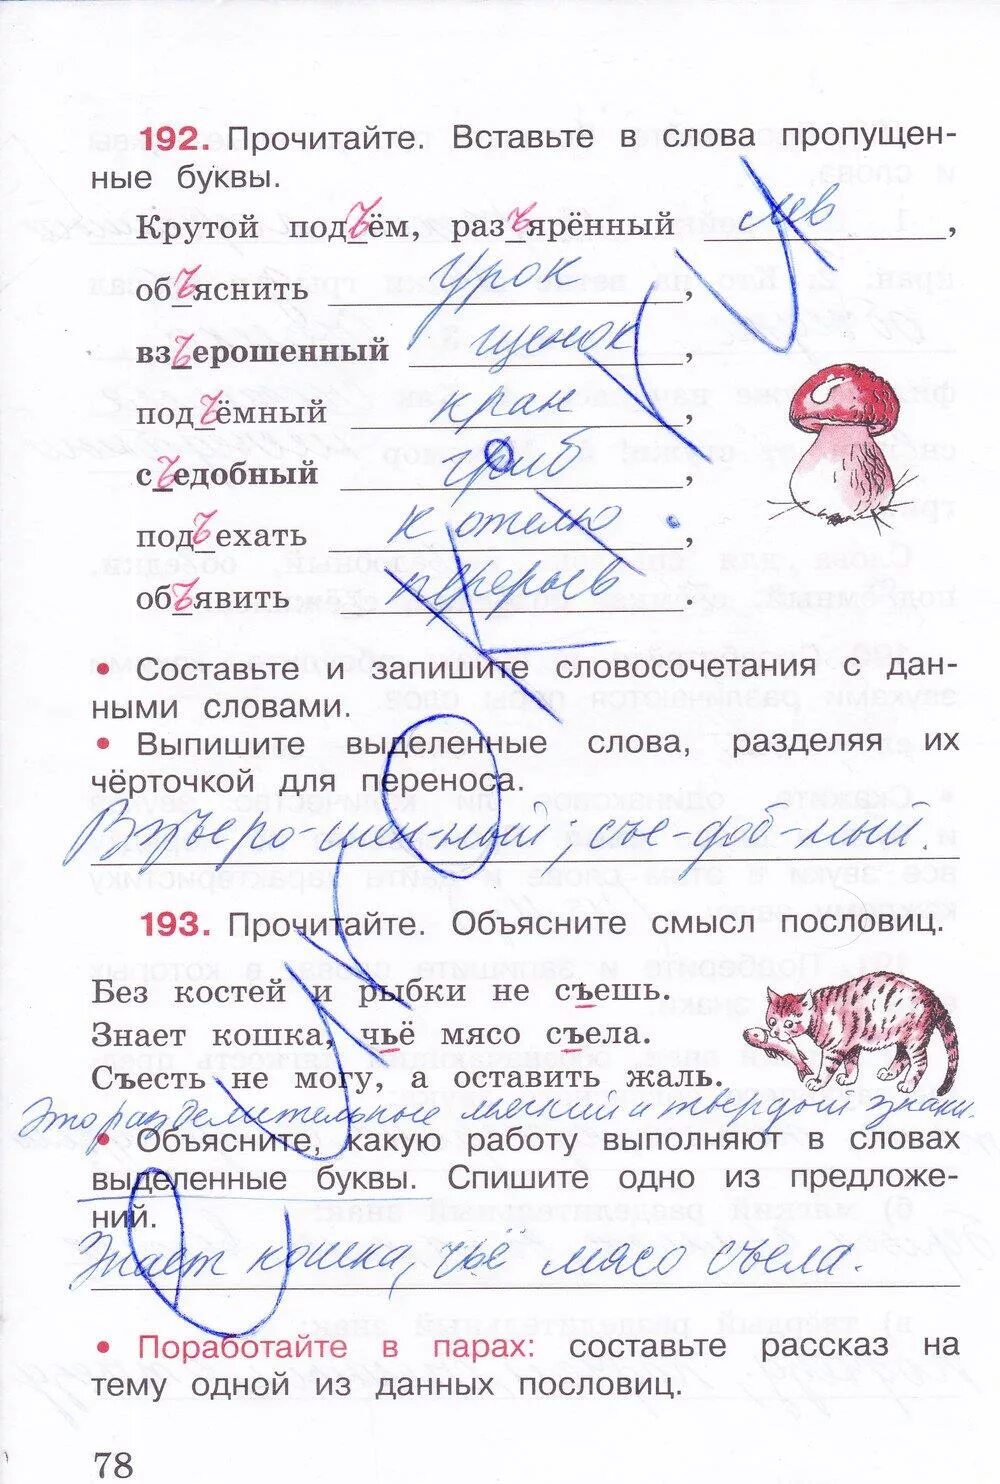 192. Прочитайте. Вставьте в слова пропущен-
ные буквы.
Крутой подъём, разъярённый лев,
объяснить урок,
взъерошенный щенок,
подъёмный кран,
съедобный гриб,
подъехать к отелю,
объявить перерыв.
• Составьте и запишите словосочетания с дан-
ными словами.
• Выпишите выделенные слова, разделяя их
чёрточкой для переноса.
Взъеро-шен-ный; съе-доб-ный.
193. Прочитайте. Объясните смысл пословиц.
Без костей и рыбки не съешь.
Знает кошка, чьё мясо съела.
Съесть не могу, а оставить жаль.
Это разделительные мягкий и твёрдый знаки.
• Объясните, какую работу выполняют в словах
выделенные буквы. Спишите одно из предложе-
ний.
Знает кошка, чьё мясо съела.
• Поработайте в парах: составьте рассказ на
тему одной из данных пословиц.
78